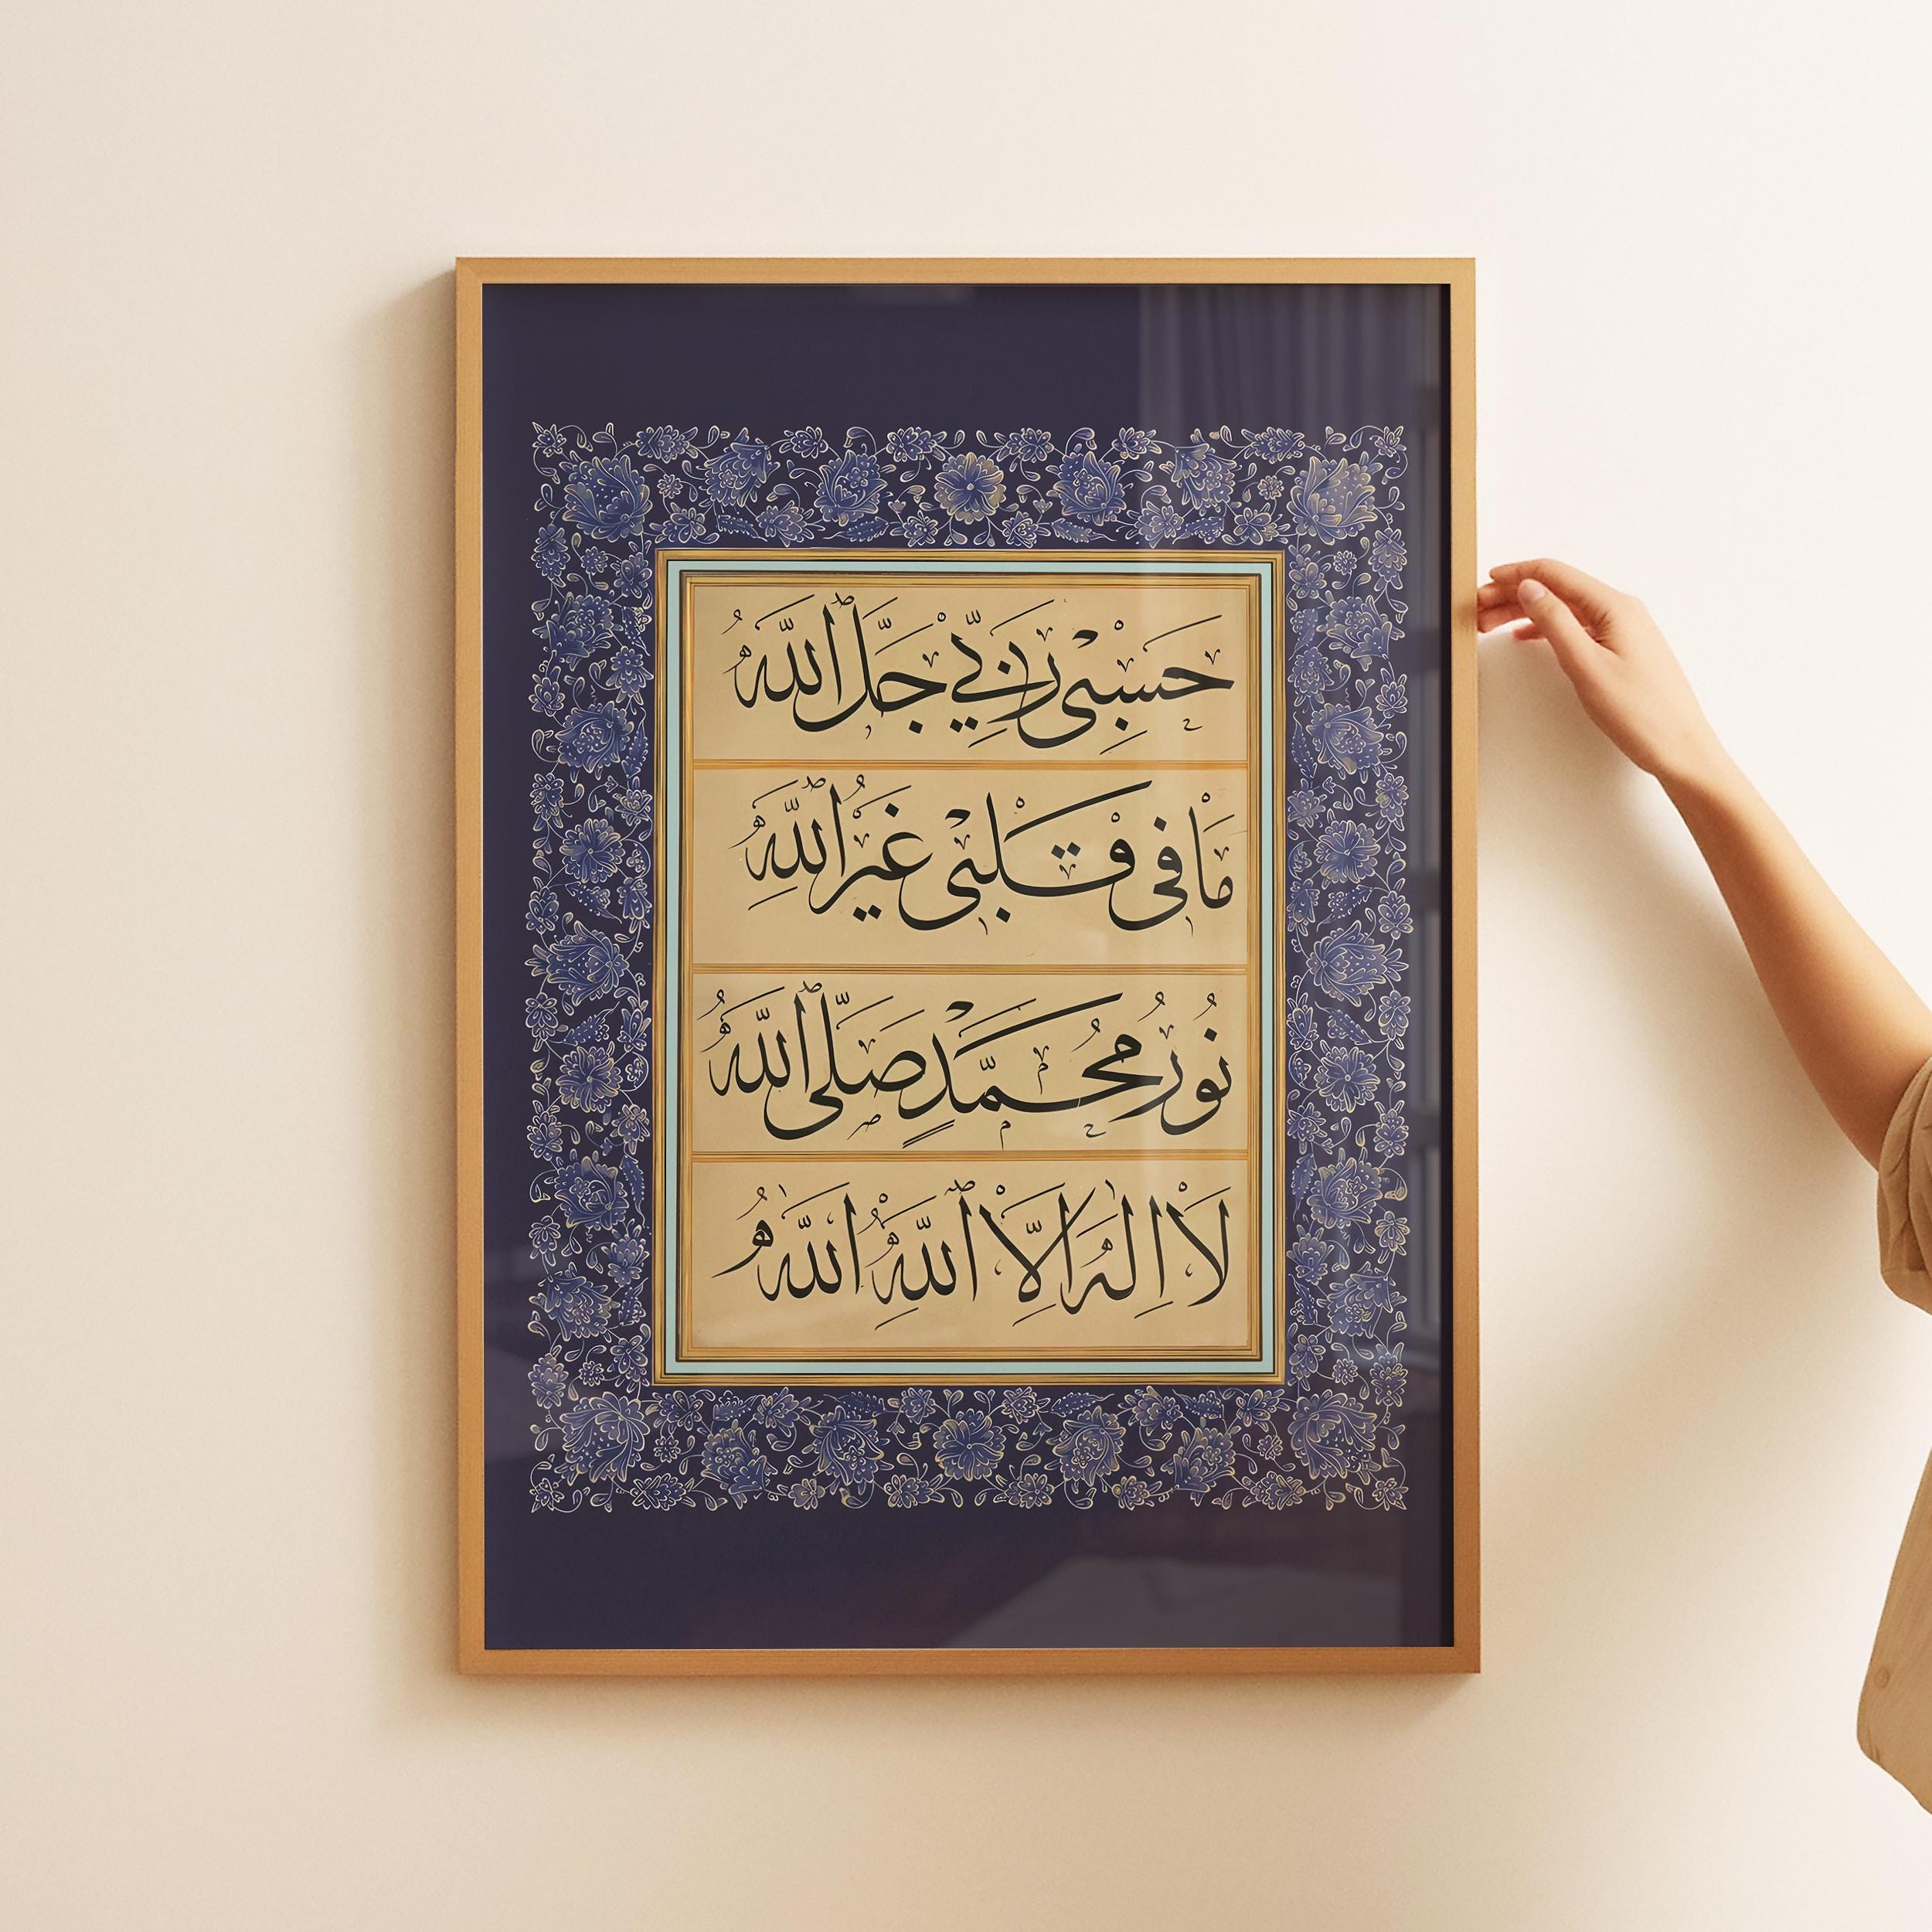 حَسْبِي رَبِّي جَلَّ اللّٰهُ
مَا فِي قَلْبِي غَيْرُ اللّٰهِ
نُورُ مُحَمَّدٍ صَلَّى اللّٰهُ
لَا اِلٰهَ اِلَّا اللّٰهُ اللّٰهُ